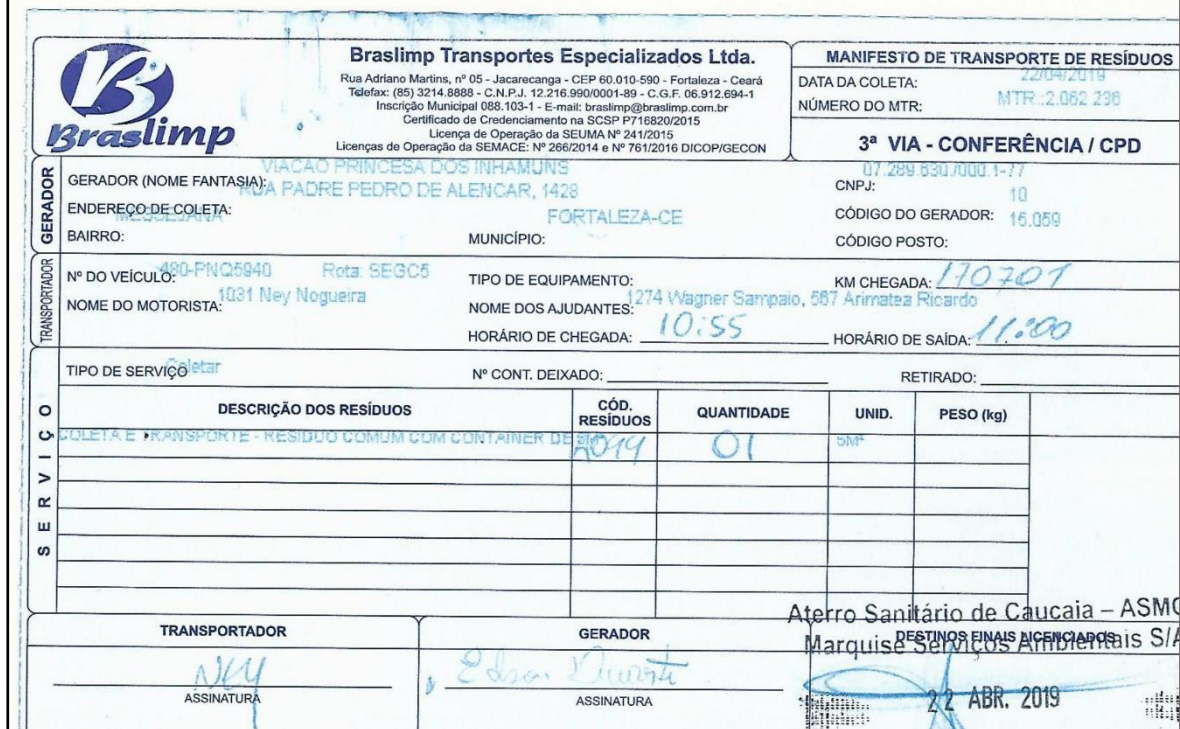 Braslimp
Braslimp Transportes Especializados Ltda.
Rua Adriano Martins, nº 05 - Jacarecanga - CEP 60.010-590 - Fortaleza - Ceará
Telefax: (85) 3214.8888 - C.N.P.J. 12.216.990/0001-89 - C.G.F. 06.912.694-1
Inscrição Municipal 088.103-1 - E-mail: braslimp@braslimp.com.br
Certificado de Credenciamento na SCSP P716820/2015
Licença de Operação da SEUMA Nº 241/2015
Licenças de Operação da SEMACE: Nº 266/2014 e Nº 761/2016 DICOP/GECON
MANIFESTO DE TRANSPORTE DE RESÍDUOS
DATA DA COLETA: 22/04/2019
NÚMERO DO MTR: MTR.:2.062.236
3ª VIA - CONFERÊNCIA / CPD
GERADOR
GERADOR (NOME FANTASIA): VIACAO PRINCESA DOS INHAMUNS
ENDEREÇO DE COLETA: RUA PADRE PEDRO DE ALENCAR, 1428
BAIRRO: MESSEJANA
MUNICÍPIO: FORTALEZA-CE
CNPJ: 07.289.630./000.1-77
CÓDIGO DO GERADOR: 10
CÓDIGO POSTO: 15.059
TRANSPORTADOR
Nº DO VEÍCULO: 480-PNQ5940 Rota: SEGC5
TIPO DE EQUIPAMENTO:
KM CHEGADA: 170701
NOME DO MOTORISTA: 1031 Ney Nogueira
NOME DOS AJUDANTES: 1274 Wagner Sampaio, 567 Arimatea Ricardo
HORÁRIO DE CHEGADA: 10:55
HORÁRIO DE SAÍDA: 11:00
SERVIÇO
TIPO DE SERVIÇO Coletar
Nº CONT. DEIXADO:
RETIRADO:
DESCRIÇÃO DOS RESÍDUOS CÓD. RESÍDUOS QUANTIDADE UNID. PESO (kg)
COLETA E TRANSPORTE - RESIDUO COMUM COM CONTAINER DE 5M³ 01 5M³
TRANSPORTADOR
Ney
ASSINATURA
GERADOR
Edson Duarte
ASSINATURA
Aterro Sanitário de Caucaia – ASMO
DESTINOS FINAIS LICENCIADOS
Marquise Serviços Ambientais S/A
22 ABR. 2019